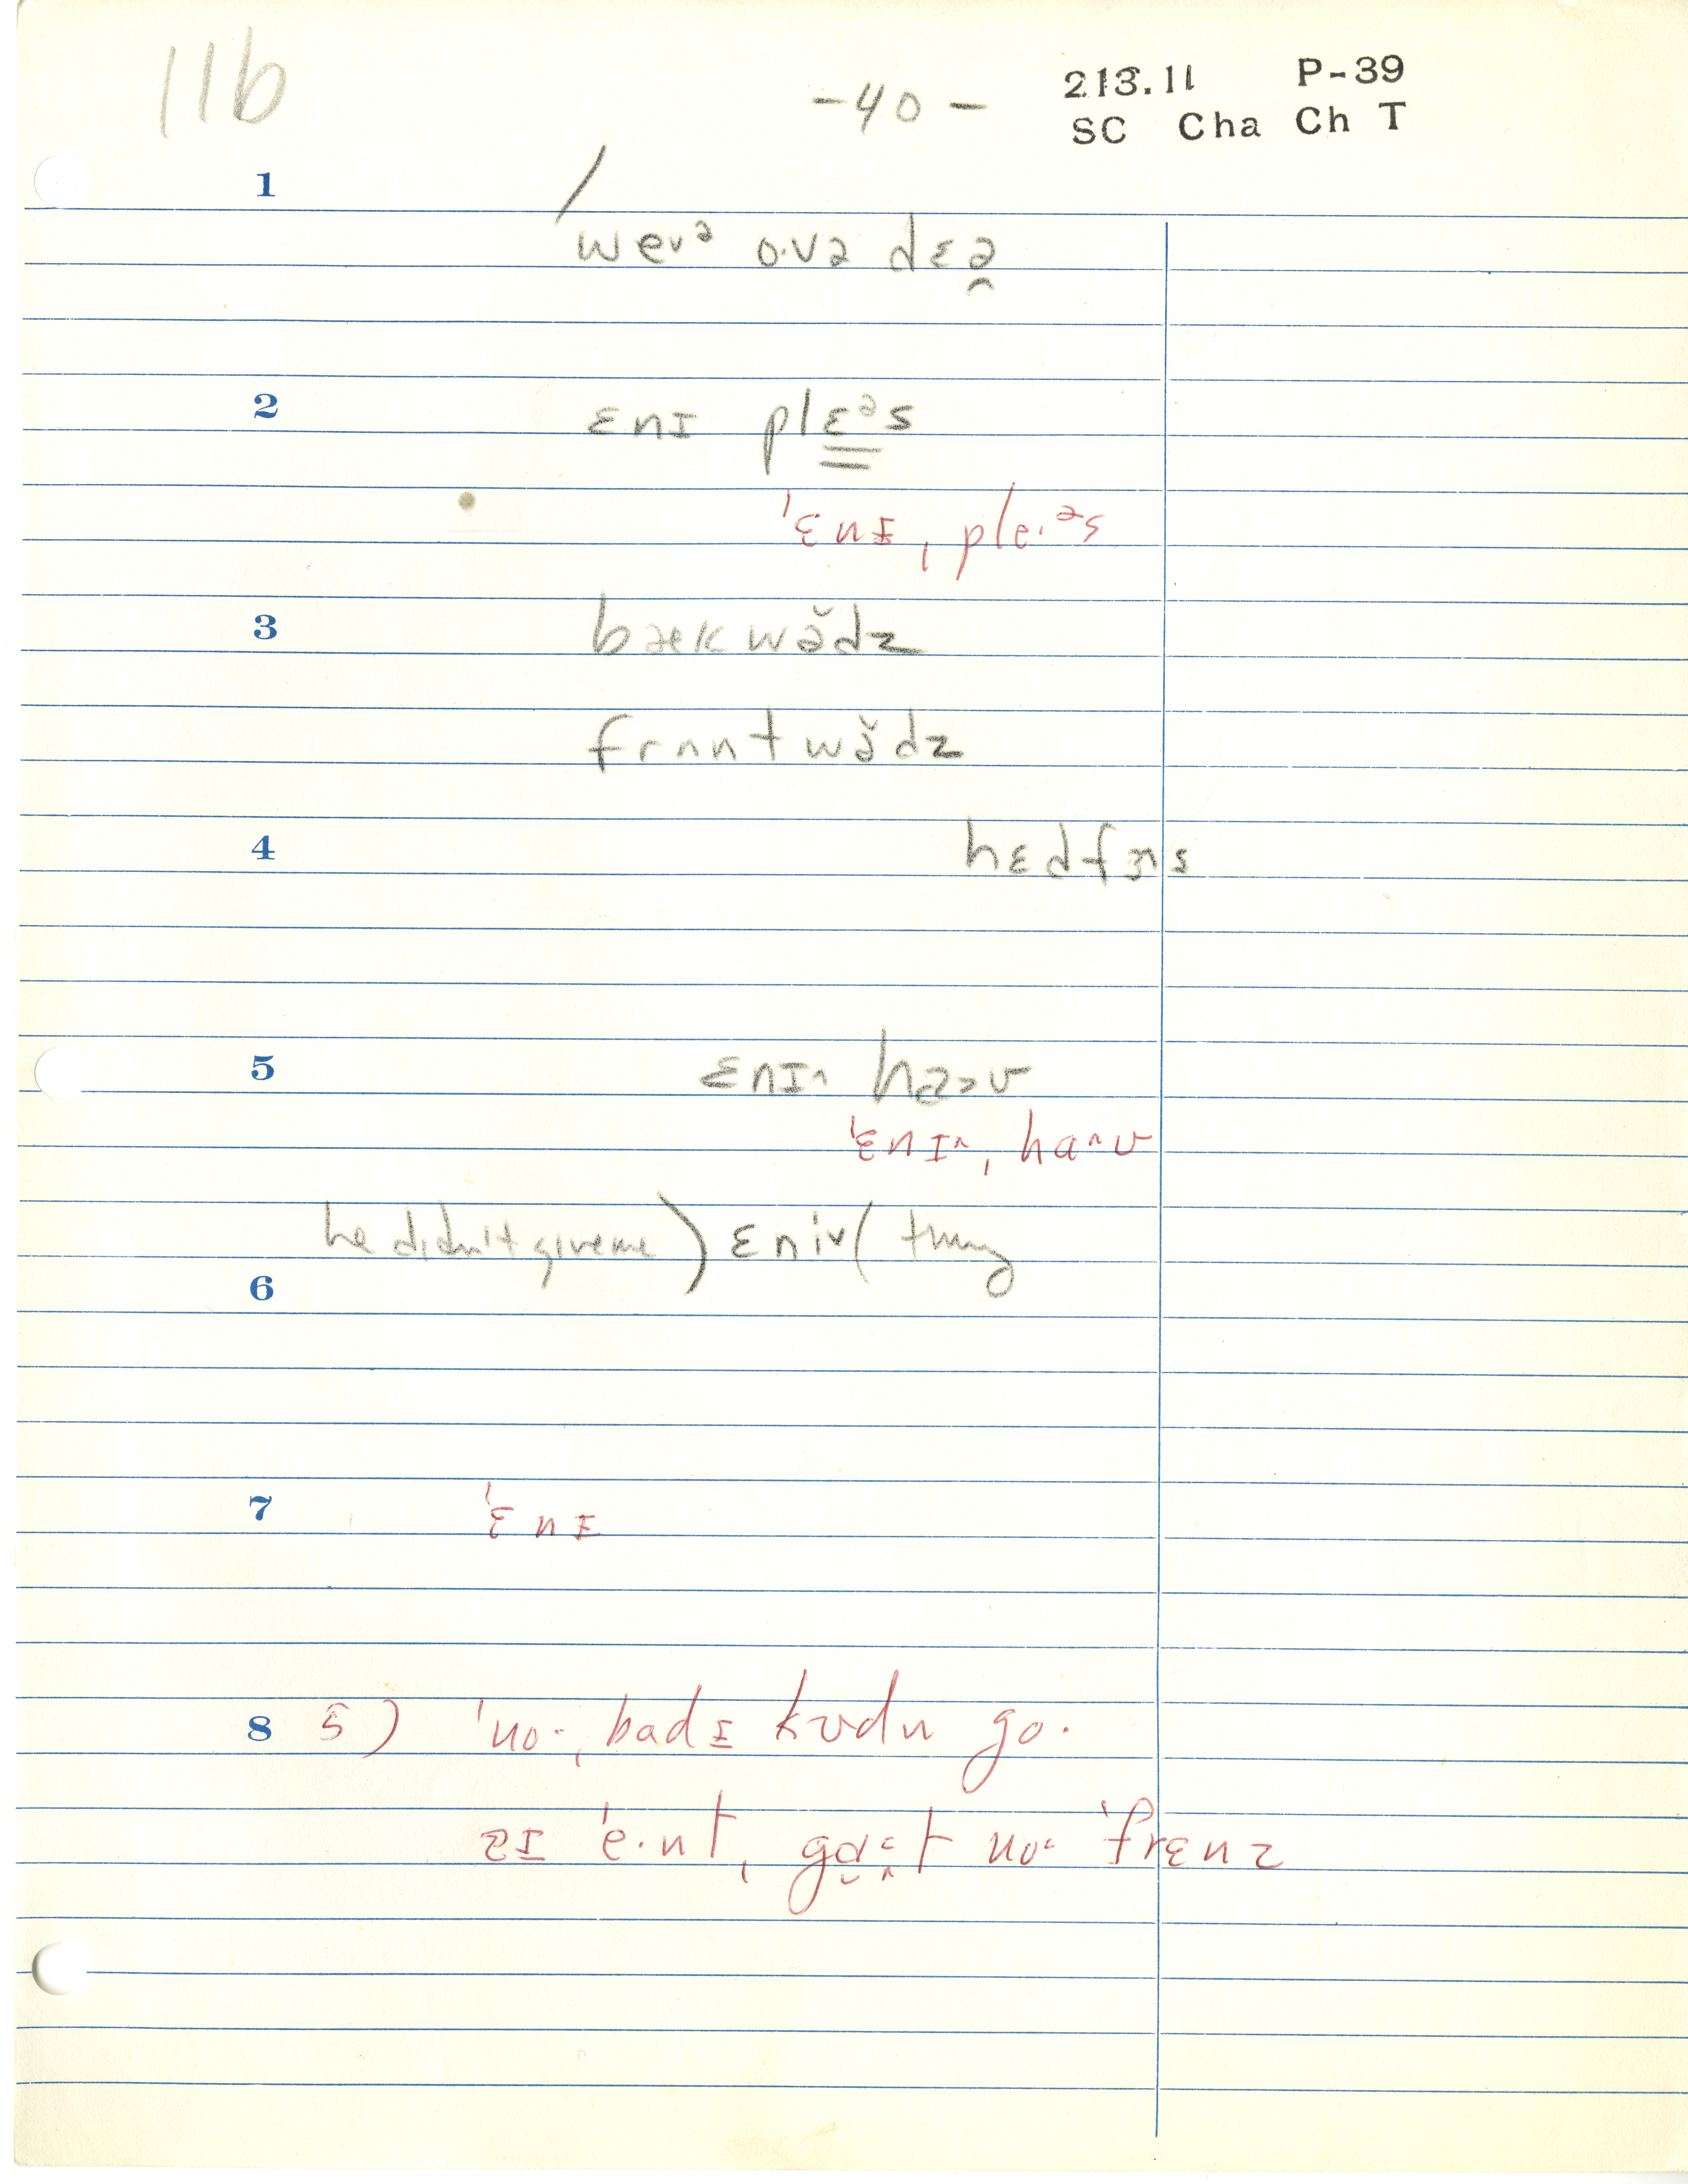 11b
-40-
213.11 P-39
SC Cha Ch T
1 /
weɪᵊ o·və dɛə̯
2 ɛnɪ plɛᵊs
ˈɛnɪ, ple·ᵊs
3 bækwə̆dz
frʌntwə̆dz
4 hɛdfɜs
5 ɛnɪ^ haʊ
ˈɛnɪ^, ha^ʊ
he didn't give me ) ɛniv ( thing
6
7 ˈɛnɪ
8 5) ˈno·, badɪ kʊdn go·
zɪ ˈe·nt, gɑ·t no· ˈfrɛnz